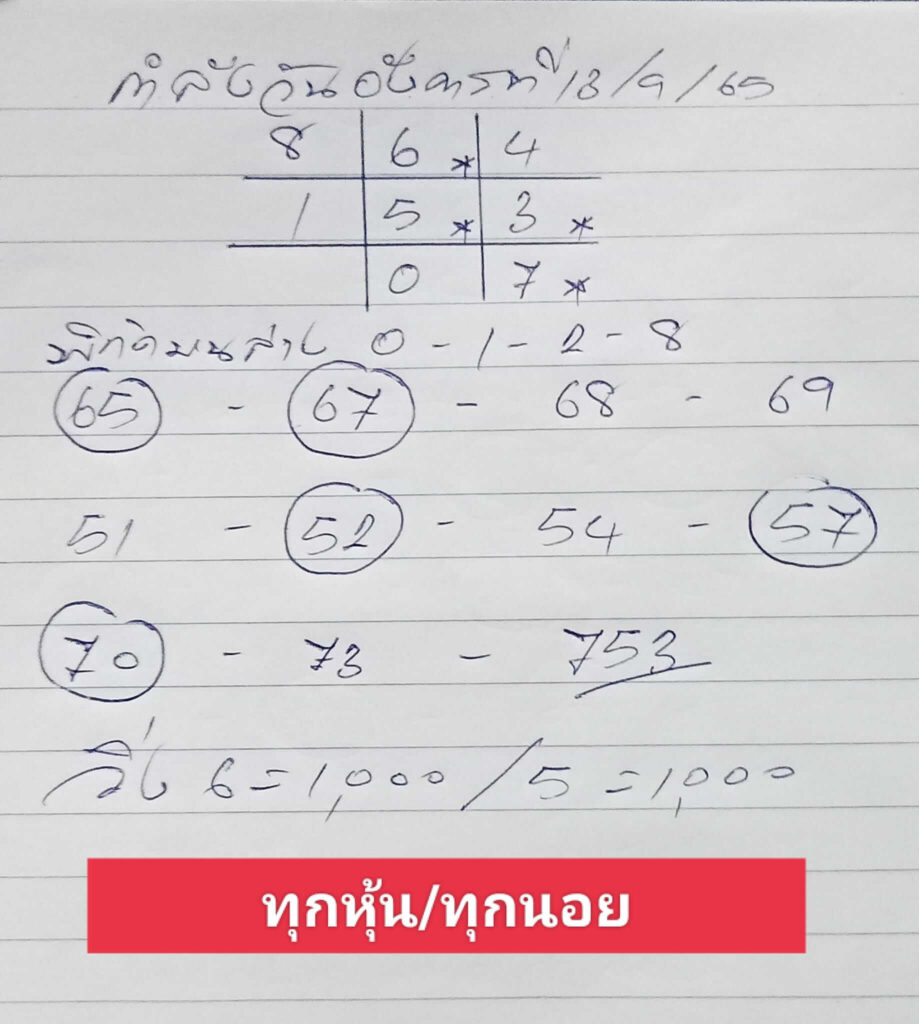 กำลังวันอังคารที่ 13/9/65
8 6* 4
1 5* 3*
0 7*
พิกัดบนล่าง 0-1-2-8
65 - 67 - 68 - 69
51 - 52 - 54 - 57
70 - 73 - 753
วิ่ง 6=1,000/5=1,000
ทุกหุ้น/ทุกนอย